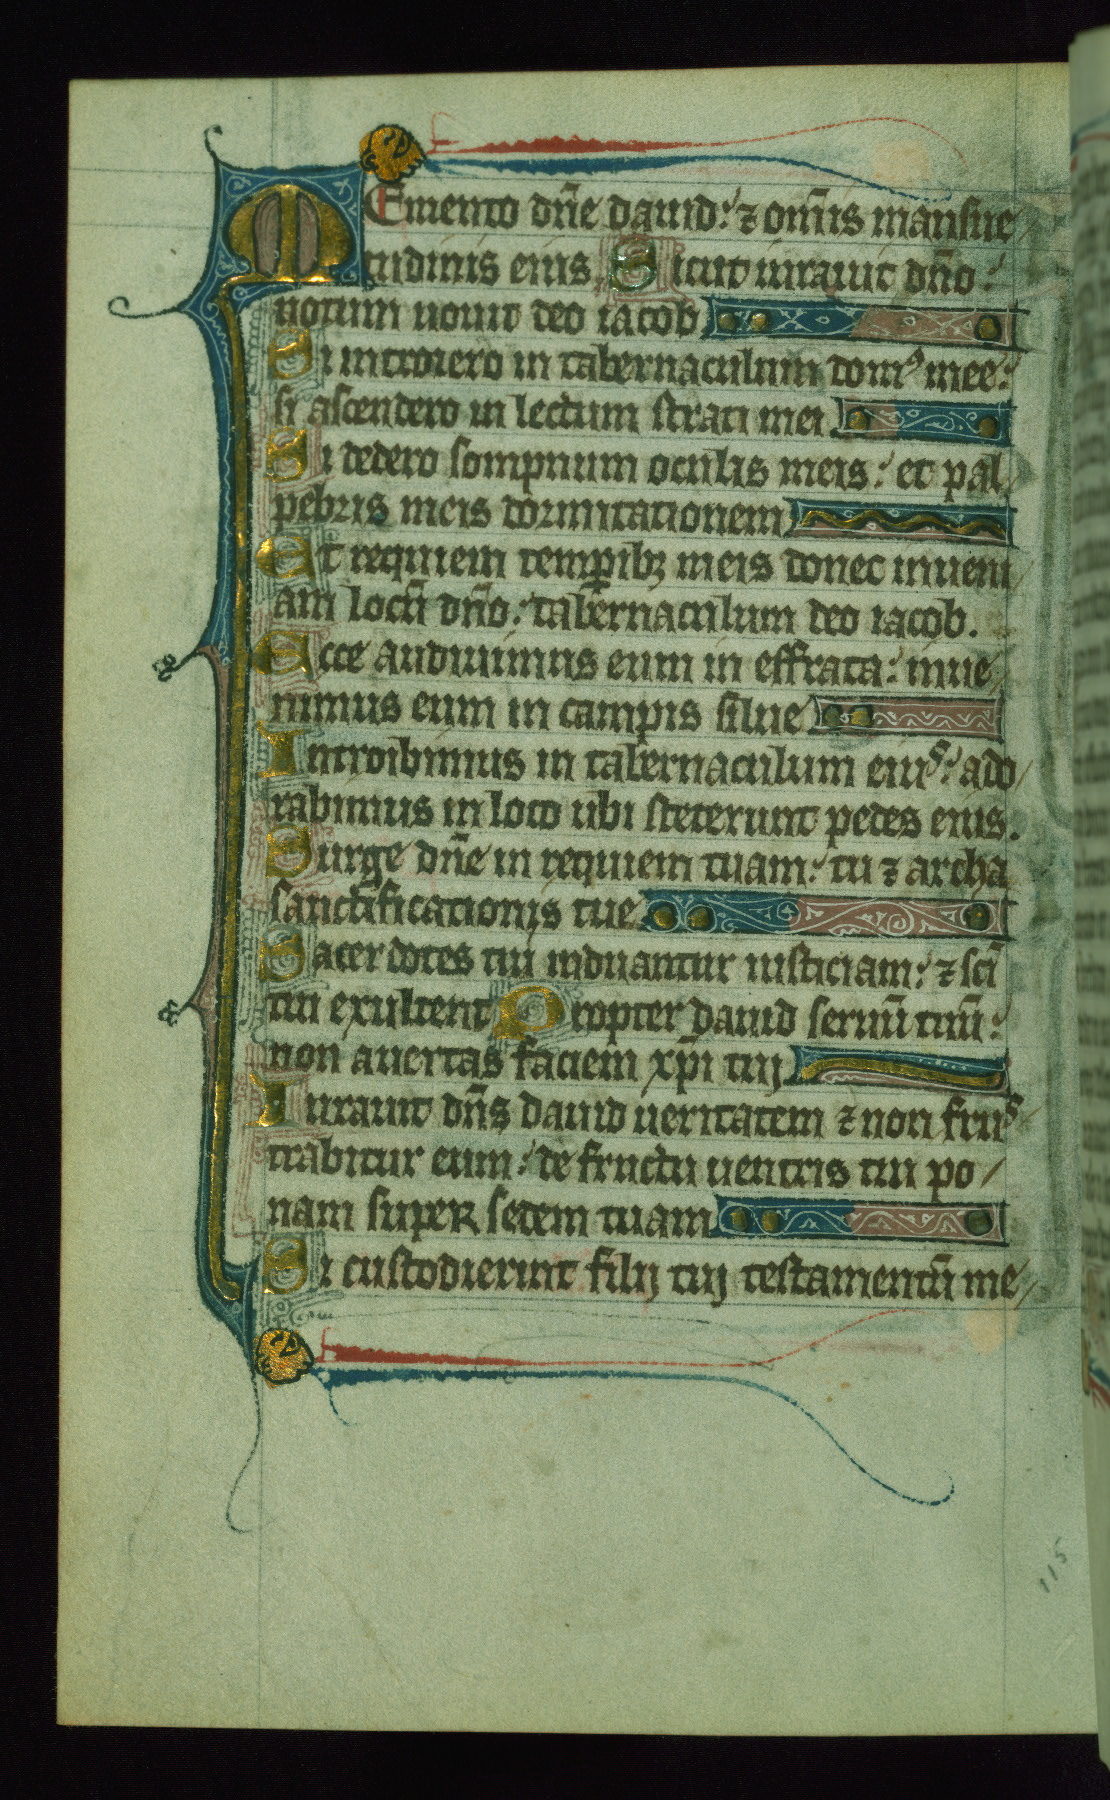 Memento dñe dauid: ⁊ om̃is mansue
tudinis eius. Sicut iurauit dño:
uotum uouit deo iacob
Si introiero in tabernaculum domꝰ mee:
si ascendero in lectum strati mei
Si dedero sompnum oculis meis: et pal
pebris meis dormitationem
Et requiem temꝑibꝫ meis donec inueni
am locũ dño: tabernaculum deo iacob.
Ecce audiuimus eum in effrata: inue
nimus eum in campis silue
Introibimus in tabernaculum eiuˢ: ado
rabimus in loco ubi steterunt pedes eius.
Surge dñe in requiem tuam: tu ⁊ archa
sanctificationis tue
Sacerdotes tui induantur iusticiam: ⁊ sc̃i
tui exultent Propter dauid seruũ tuũ:
non auertas faciem xp̃i tuj
Iurauit dñs dauid ueritatem ⁊ non fruˢ
trabitur eum: de fructu uentris tui po
nam super sedem tuam
Si custodierint filij tuj testamentũ me
115